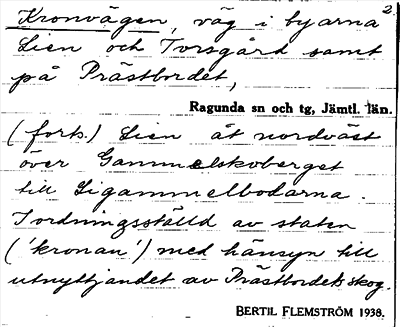 2.
Kronvägen, väg i byarna
Lien och Torsgård samt
på Prästbordet,
Ragunda sn och tg, Jämtl. län.
(forts.) Lien åt nordväst
över Gammelskoberget
till Ligammelbodarna.
Iordningsställd av staten
('kronan') med hänsyn till
utnyttjandet av Prästbordets skog.
BERTIL FLEMSTRÖM 1938.